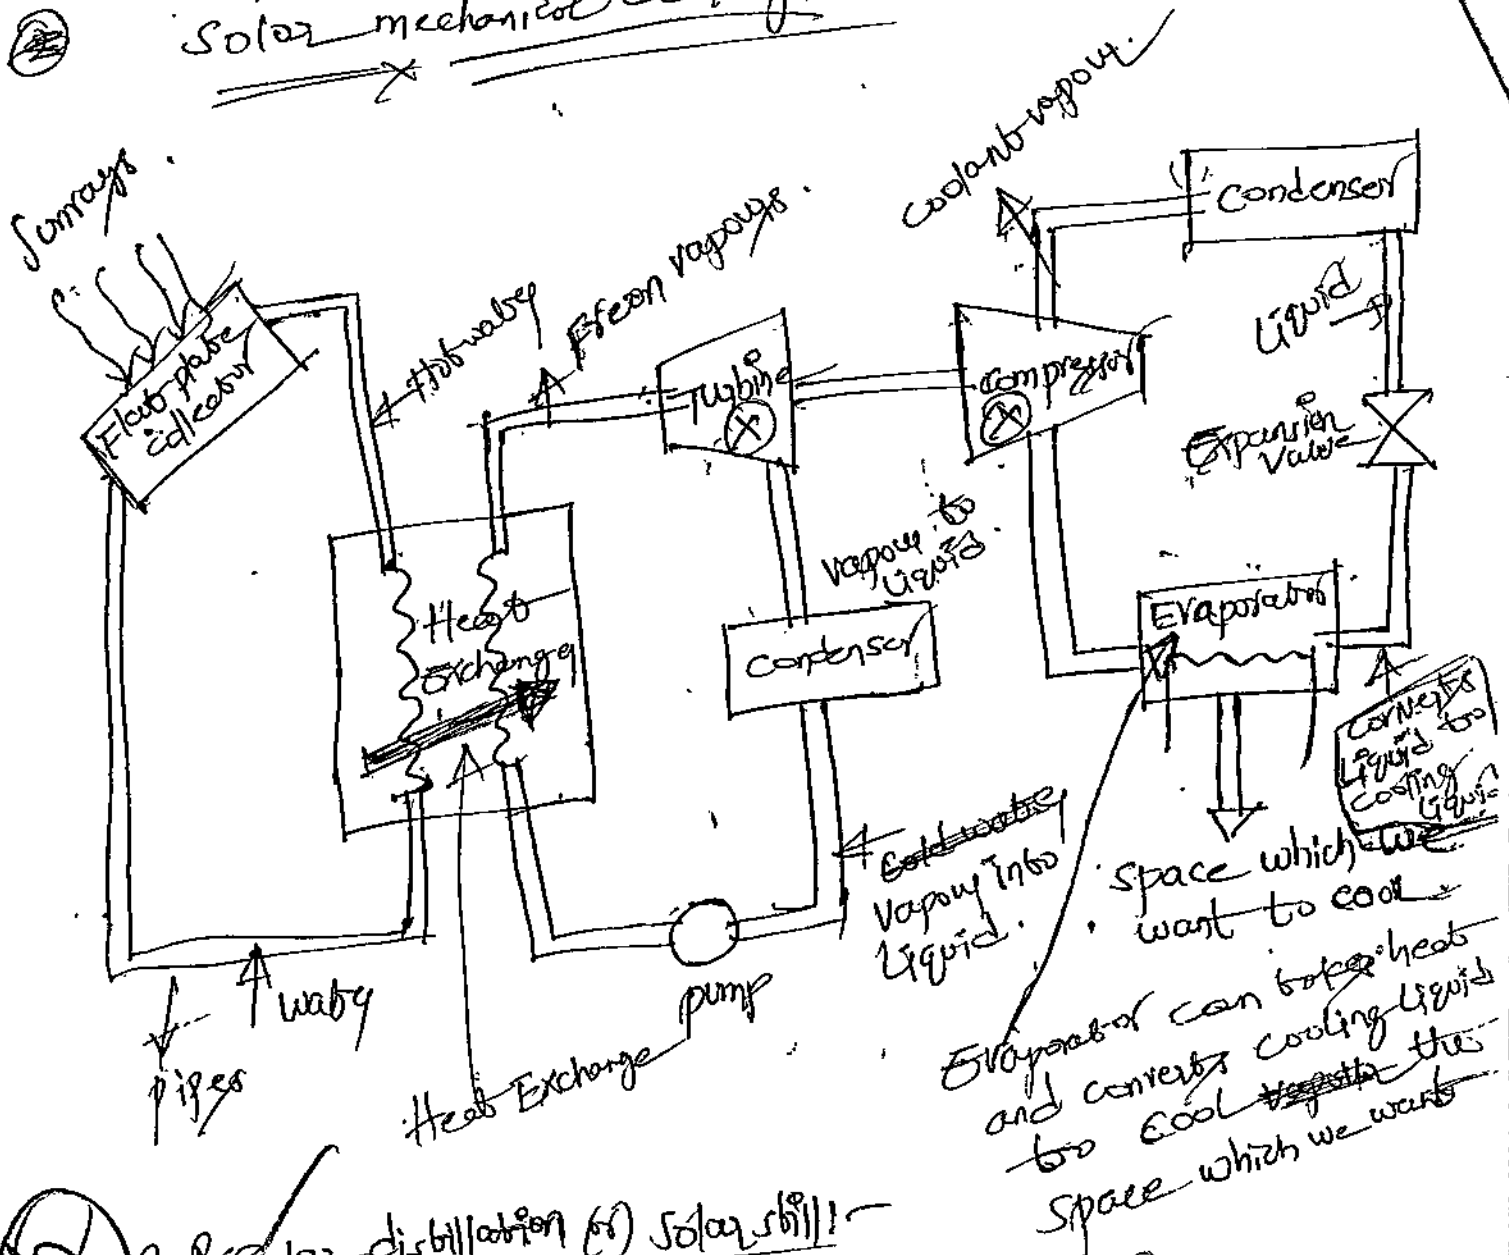 Solar mechanical
Sunrays.
Flat plate
collector
Hot water
Freon vapours.
Turbine
Coolant vapour.
Compressor
Condenser
Liquid
Expansion
Valve
Evaporator
Heat
Exchanger
vapour to
liquid.
Condenser
Converts
liquid to
cooling
liquid
Cold water
vapour into
liquid.
space which we
want to cool
water
pipes
pump
Heat Exchange
Evaporator can take heat
and converts cooling liquid
to cool the
space which we want
distillation (or) solar still:-